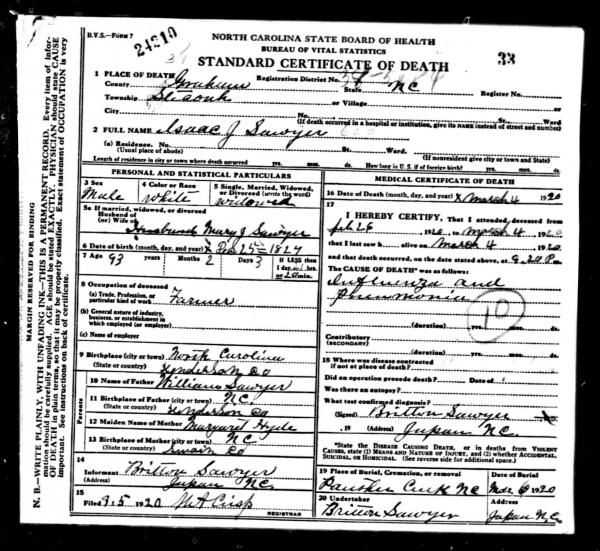 B.V.S.—FORM 7
24210
NORTH CAROLINA STATE BOARD OF HEALTH
BUREAU OF VITAL STATISTICS
STANDARD CERTIFICATE OF DEATH
33
1 PLACE OF DEATH
Registration District No.
County Graham State NC Register No.
Township or Village or
City No. St. Ward.
(If death occurred in a hospital or institution, give its NAME instead of street and number)
2 FULL NAME Isaac J Sawyer
(a) Residence. No. St. Ward.
(Usual place of abode) (If nonresident give city or town and State)
Length of residence in city or town where death occurred yrs. mos. ds. How long in U. S. if of foreign birth? yrs. mos. ds.
PERSONAL AND STATISTICAL PARTICULARS
3 Sex Male
4 Color or Race white
5 Single, Married, Widowed, or Divorced (write the word) widowed
5a If married, widowed, or divorced
Husband of
(or) Wife of Husband Mary J Sawyer
6 Date of birth (month, day, and year) X Dec 25 - 1827
7 Age 93 years Months 2 Days 3 If LESS than 1 day, hrs. or min.
8 Occupation of deceased
(a) Trade, Profession, or particular kind of work Farmer
(b) General nature of industry, business, or establishment in which employed (or employer)
(c) Name of employer
9 Birthplace (city or town) North Carolina
(State or country) Henderson Co
Parents
10 Name of Father William Sawyer
11 Birthplace of Father (city or town) NC.
(State or country) Henderson Co
12 Maiden Name of Mother Margaret Hyde
13 Birthplace of Mother (city or town) NC
(State or country) Swain Co
14
Informant Britton Sawyer
(Address) Japan NC.
15
Filed 9/5 1920 M A Crisp
REGISTRAR
MEDICAL CERTIFICATE OF DEATH
16 Date of Death (month, day, and year) X March 4 1920
17
I HEREBY CERTIFY, That I attended, deceased from
Feb 26 1920, to March 4 1920
that I last saw h alive on March 4 1920
and that death occurred, on the date stated above, at 9.20 Pm
The CAUSE OF DEATH* was as follows:
Influenza and
Pneumonia
10
(duration) yrs. mos. ds.
Contributory
(Secondary)
(duration) yrs. mos. ds.
18 Where was disease contracted
if not at place of death?
Did an operation precede death? Date of
Was there an autopsy?
What test confirmed diagnosis?
(Signed) Britton Sawyer M.D.
, 19 (Address) Japan NC.
*State the DISEASE CAUSING DEATH, or in deaths from VIOLENT CAUSES, state (1) MEANS AND NATURE OF INJURY, and (2) whether ACCIDENTAL, SUICIDAL, or HOMICIDAL. (See reverse side for additional space.)
19 Place of Burial, Cremation, or removal Panther Creek NC
Date of Burial Mar. 6 1920
20 Undertaker Britton Sawyer
Address Japan N.C.
MARGIN RESERVED FOR BINDING
N. B.—WRITE PLAINLY, WITH UNFADING INK—THIS IS A PERMANENT RECORD. Every item of information should be carefully supplied. AGE should be stated EXACTLY. PHYSICIAN should state CAUSE OF DEATH in plain terms, so that it may be properly classified. Exact statement of OCCUPATION is very important. See instructions on back of certificate.